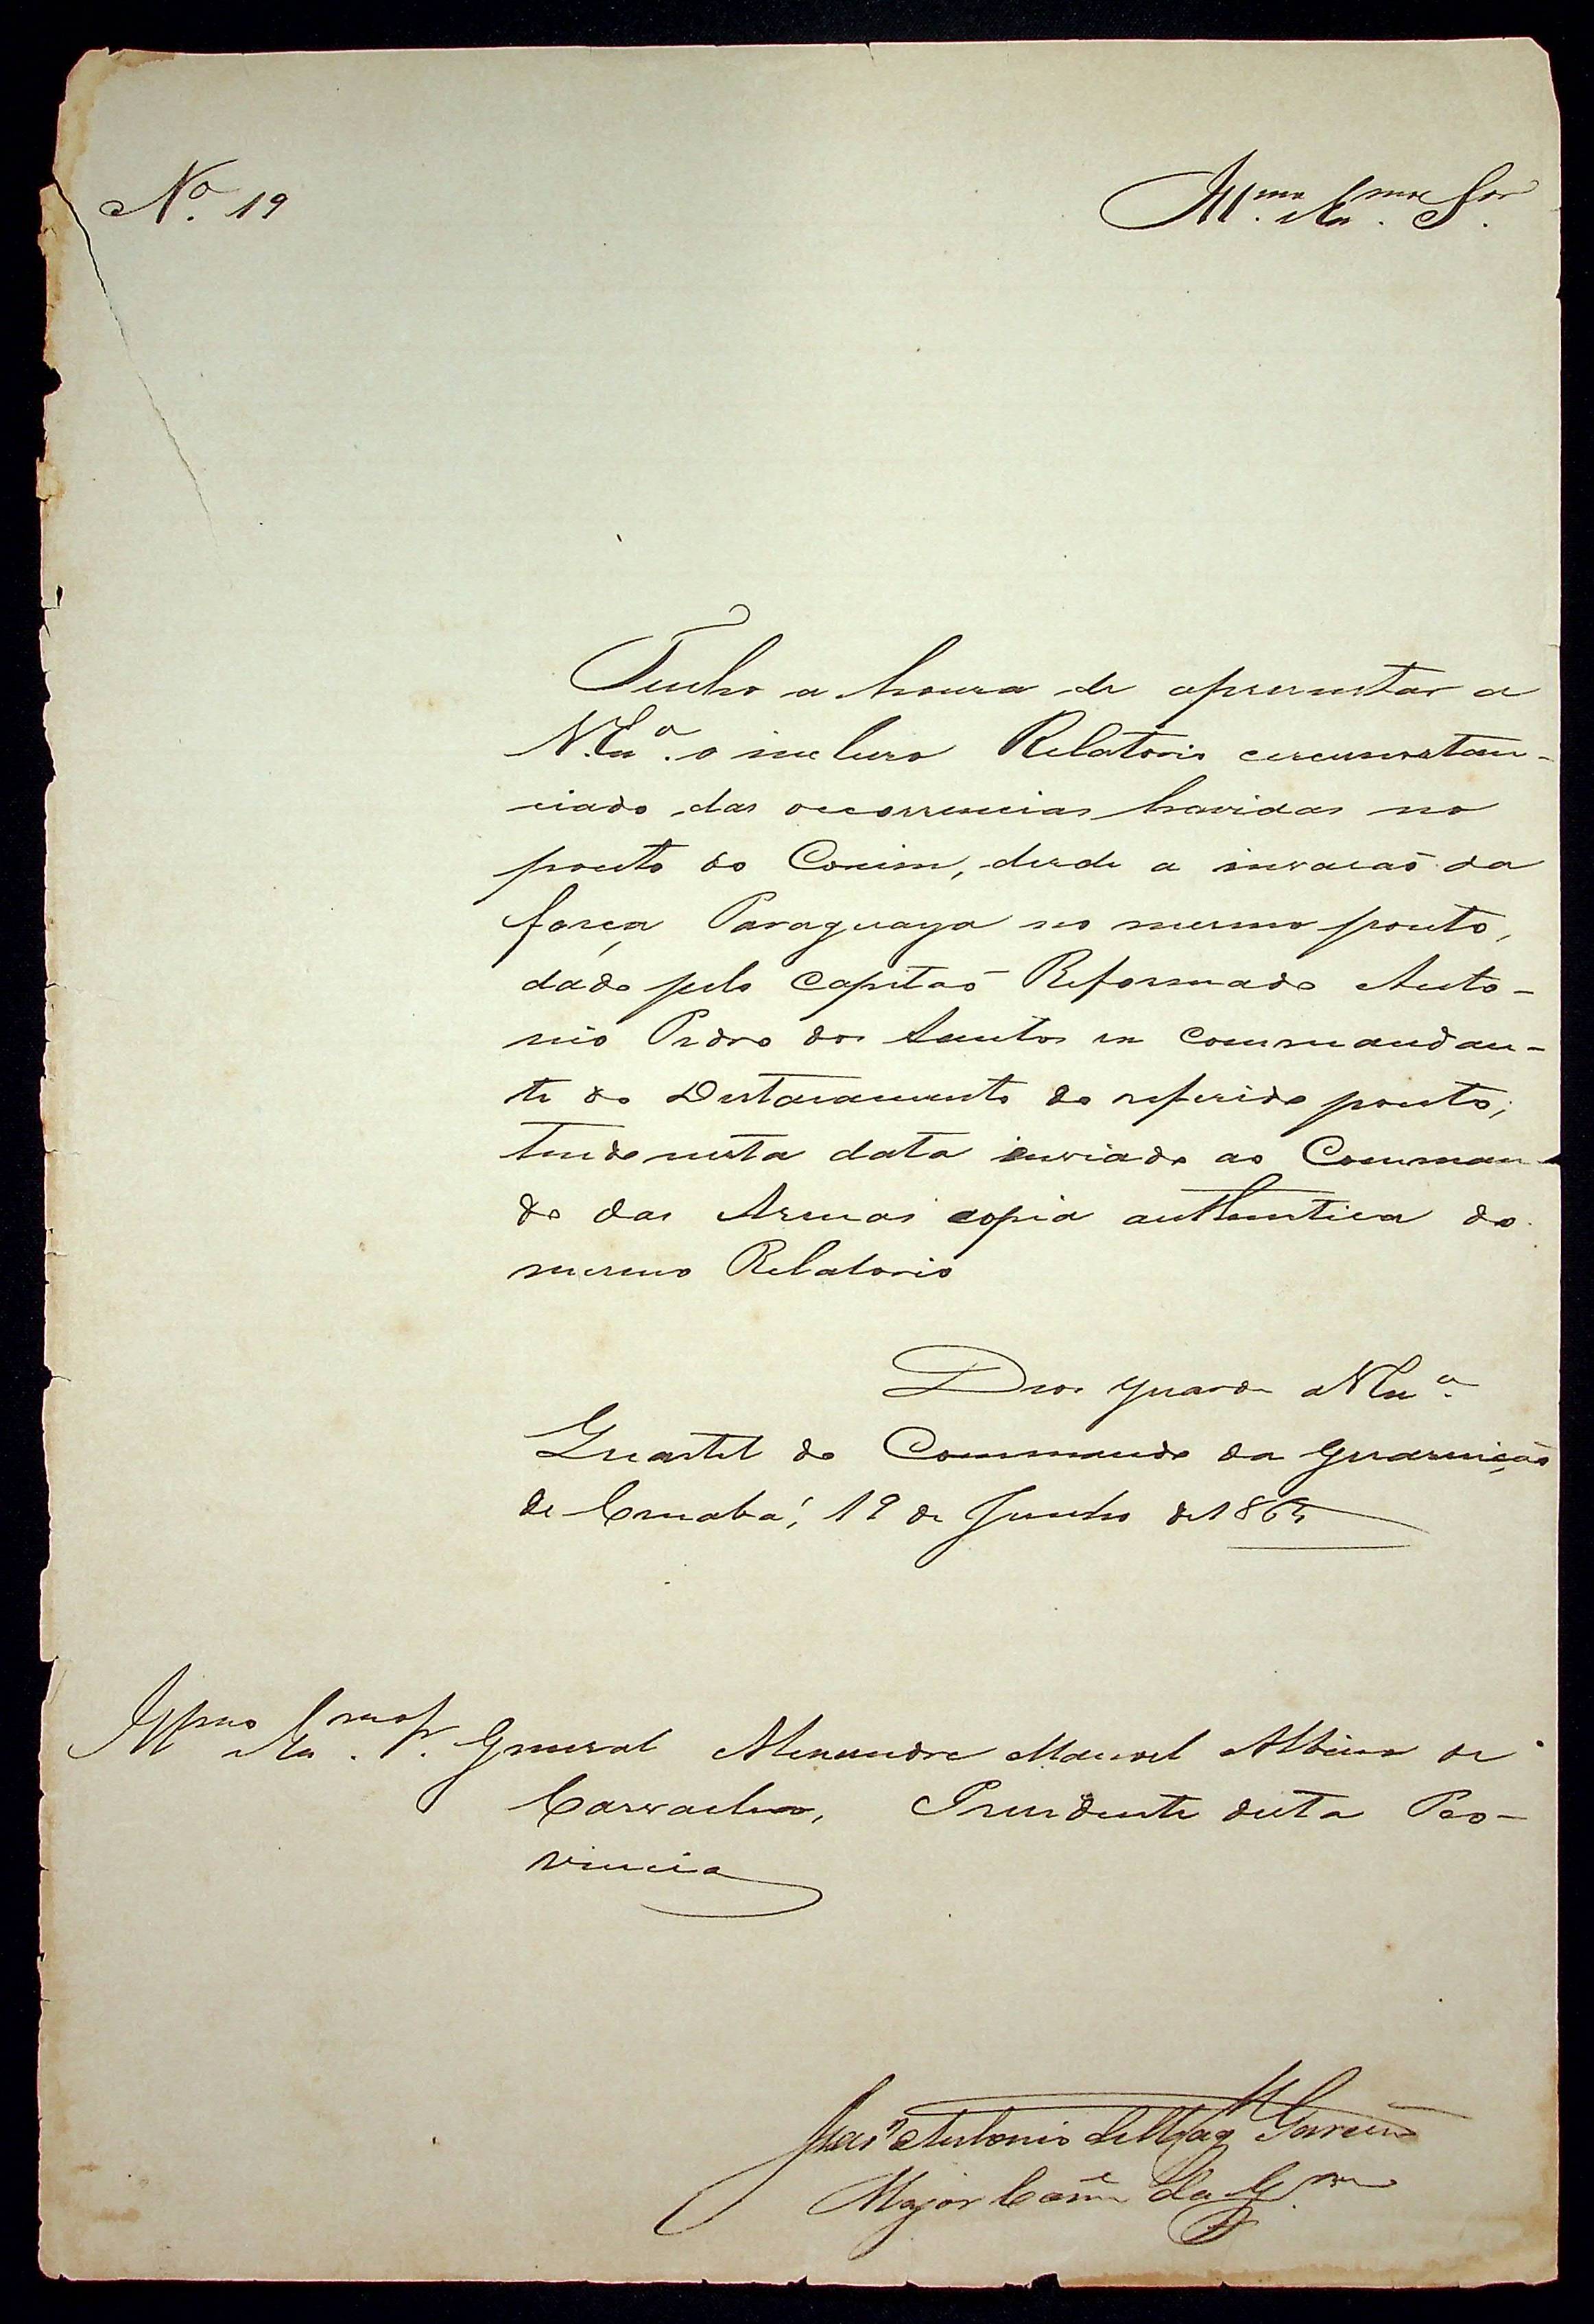 Nº. 19
Illmo. Exmo. Snr.
Tenho a honra de apresentar a
V. Exª. o incluso Relatorio circunstan-
ciado das occorrencias havidas no
ponto do Coxim, desde a invasaõ da
força Paraguaya no mesmo ponto,
dado pelo Capitaõ Reformado Anto-
nio Pedro dos Santos ex Commandan-
te do Destacamento do referido ponto;
tendo nesta data enviado ao Comman-
do das Armas copia authentica do
mesmo Relatorio
Deos guarde a V Exª.
Quartel do Commando da Guarniçaõ
de Cuiabá, 19 de Junho de 1865
Illmo Exmo Sr. General Alexandre Manoel Albino de
Carvalho, Presidente desta Pro-
vincia
Antonio
Major Comm.e da G.